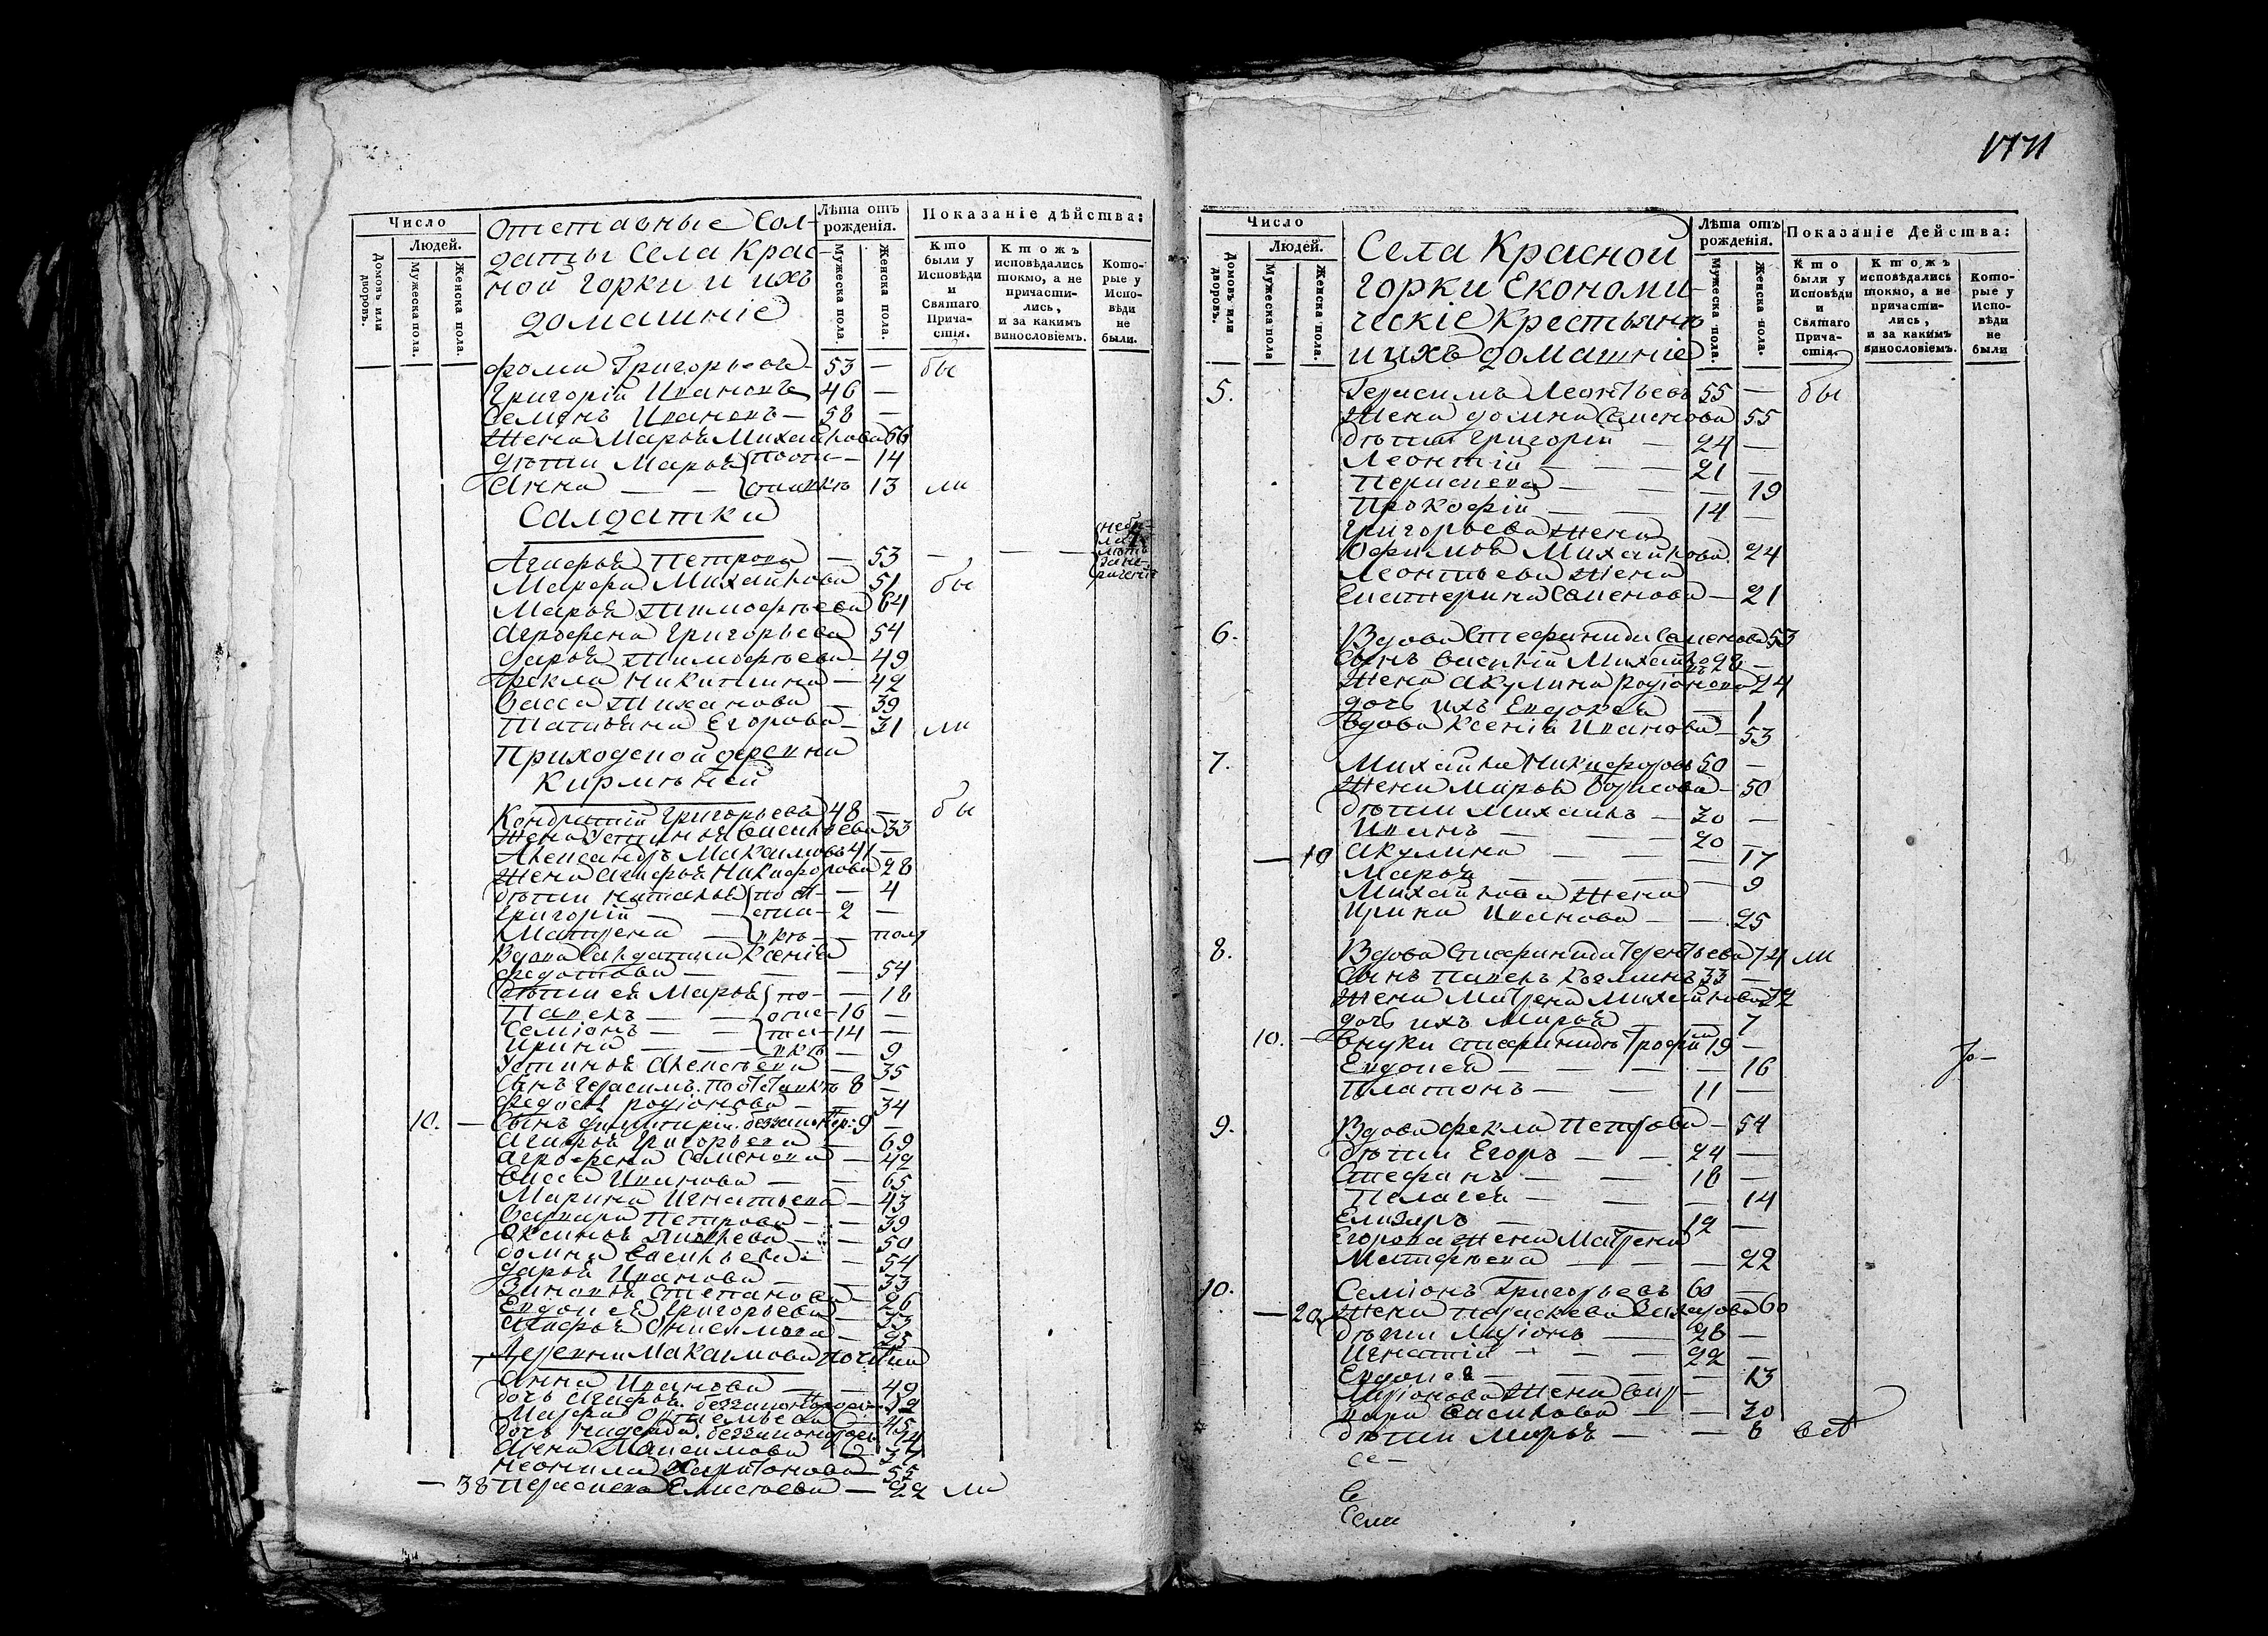 Число
Людей.
Домовъ или дворовъ.
Мужеска пола.
Женска пола.
Отставные Сол-
даты Села Крас-
ной Горки и ихъ
домашніе
Лѣта отъ рожденія.
Мужеска пола.
Женска пола.
Показаніе дѣйства:
Кто были у Исповѣди и Святаго Прича-стія.
Ктожъ исповѣдались токмо, а не причасти-лись, и за какимъ винословіемъ.
Кото-рые у Испо-вѣди не были.
Фома Григорьевъ 53 — бы
Григорій Ивановъ 46 —
Семенъ Ивановъ — 58 —
Жена Марья Михайлова 56
дѣти Марья — 14
Анна — — 13 ли
Салдатки
Агафья Петрова — 53 — —
Марфа Михайлова 51 бы
Марья Тимофеева 64
Агрофена Григорьева 54
Дарья Тимофеева — 49
Фекла Никитина — 42
Васса 39
Татьяна Егорова — 31 ли
Приходской деревни
Кондратій Григорьевъ 48 — бы
Жена Устинья Васильева 33
Александръ Максимовъ 41 —
Жена Агафья Никифорова 28
дѣти Наталья — 4
Григорій — — 2 —
Матрена — — пол
Вдова Салдатка Ксенія
Федотова — — — 54
дѣти ей Марья — 18
Павелъ — — 16 —
Семіонъ — — 14 —
Ирина — — — 9
Устинья Алексѣева — 35
Сынъ Герасимъ 8 —
Федосья Родіонова — 34
10. — Сынъ Димитрій 9 —
Агафья Григорьева — 69
Агрофена Семенова — 42
Васса Иванова — — 65
Марина Игнатьева — 43
Варвара Петрова — — 39
Оксинья — — 50
Домна Васильева — 54
Дарья Иванова — — 33
Зиновья Степанова — 26
Евдокея Григорьева — 33
Агафья — 25
Деревни Максимова Починка
Анна Иванова — — 49
дочь Агафья
Марфа — 45
дочь
Анна Максимова
Неонила Харитонова — 55
— 38 Параскева Елисѣева — 22 ли
Число
Людей.
Домовъ или дворовъ.
Мужеска пола
Женска пола.
Села Красной
Горки Економи-
ческіе Крестьяне
и ихъ домашніе
Лѣта отъ рожденія.
Мужеска пола.
Женска пола.
Показаніе Дейсшва:
Кто были у Исповѣди и Святаго Прича-стія.
Ктожъ исповѣдались токмо, а не причасти-лись, и за какимъ винословіемъ.
Кото-рые у Испо-вѣди не были
5. Герасимъ Леонтьевъ 55 — бы
Жена Домна Семенова 55
дѣти Григорій — 24 —
Леонтій — — — 21 —
Параскева — — — 19
Прокофій — — 14 —
Григорьева Жена
Офимья Михайлова 24
Леонтьева Жена
Екатерина Семенова — 21
6. Вдова Стефанида Семенова 53
Сынъ Василій Михайловъ 28 —
Жена Акулина Родіонова 24
дочь ихъ Евдокея — 1
Вдова Ксенія Иванова — 53
7. Михайла Никифоровъ 50 —
Жена Марья Борисова — 50
дѣти Михаилъ — 30 —
Иванъ — — — 20 —
— 10 Акулина — — — 17
Марья — — — — 9
Михайлова Жена
Ирина Иванова — — 25
8. Вдова Стефанида Терентьева 74 ли
Сынъ Павелъ Козминъ 33 —
Жена Матрена Михайлова 32
дочь ихъ Марья — — 7
10. — Внуки Стефаниды Трофим 19 —
Евдокея — — — — 16
Платонъ — — — 11 —
9. Вдова Фекла Петрова — 54
дѣти Егоръ — — 24 —
Стефанъ — — 18 —
Пелагея — — — 14
Елизаръ — — 12 —
Егорова Жена Матрена
Матфеева — — — 22
10. Семіонъ Григорьевъ 60 —
— 20 Жена Параскева Захарова 60
дѣти Ларіонъ — 28 —
Игнатій — — — 22 —
Евдокея — — — — 13
Ларіонова Жена Вар-
вара Васильева — — 30
дѣти Марья — — 6
Се —
Се
Семи